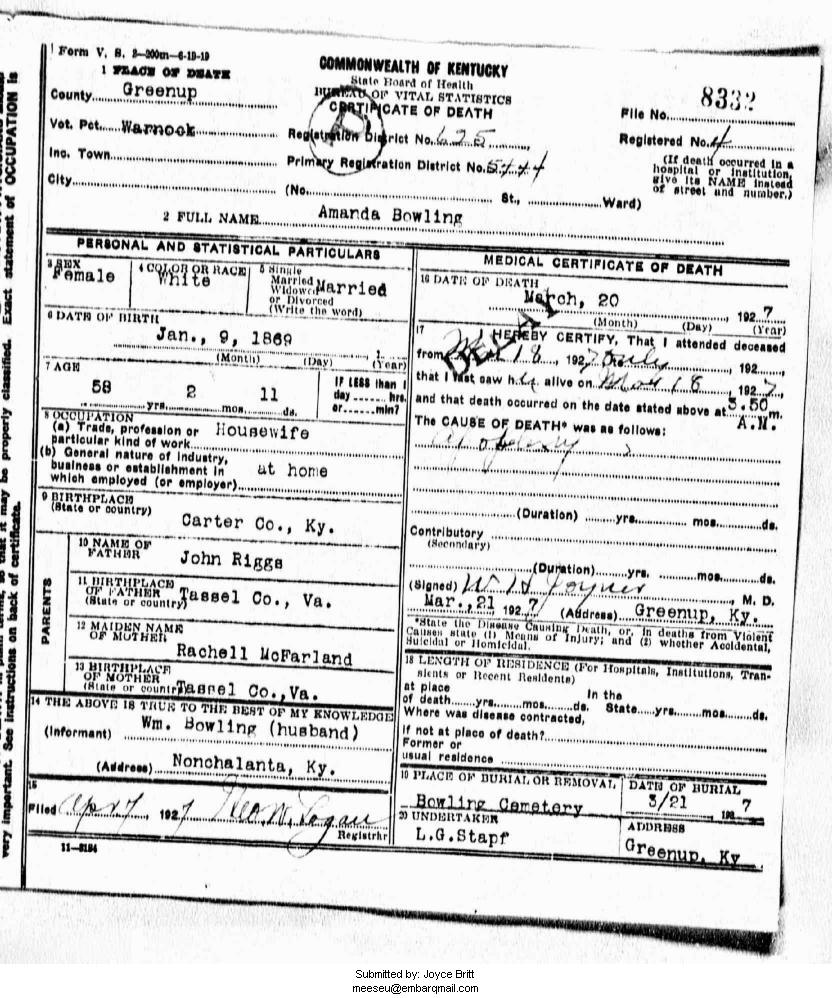 Form V. S. 2-200m-6-19-19
COMMONWEALTH OF KENTUCKY
State Board of Health
BUREAU OF VITAL STATISTICS
CERTIFICATE OF DEATH
1 PLACE OF DEATH
County Greenup
Vot. Pct. Warnock
Inc. Town
City
Registration District No. 625
Primary Registration District No. 5444
(No. St., Ward)
File No. 8332
Registered No. 4
(If death occurred in a
hospital or institution,
give its NAME instead
of street and number.)
2 FULL NAME Amanda Bowling
PERSONAL AND STATISTICAL PARTICULARS
3 SEX
Female
4 COLOR OR RACE
White
5 Single
Married
Widowed
or Divorced
(Write the word)
Married
6 DATE OF BIRTH
Jan., 9, 1869
(Month) (Day) (Year)
7 AGE
58 yrs. 2 mos. 11 ds.
IF LESS than 1
day hrs.
or min?
8 OCCUPATION
(a) Trade, profession or
particular kind of work Housewife
(b) General nature of industry,
business or establishment in
which employed (or employer) at home
9 BIRTHPLACE
(State or country)
Carter Co., Ky.
PARENTS
10 NAME OF
FATHER John Riggs
11 BIRTHPLACE
OF FATHER
(State or country) Tassel Co., Va.
12 MAIDEN NAME
OF MOTHER
Rachell McFarland
13 BIRTHPLACE
OF MOTHER
(State or country) Tassel Co.,Va.
14 THE ABOVE IS TRUE TO THE BEST OF MY KNOWLEDGE
(Informant) Wm. Bowling (husband)
(Address) Nonchalanta, Ky.
15
Filed Apr 7, 1927 Geo. W. Logan
Registrar
11-3184
MEDICAL CERTIFICATE OF DEATH
16 DATE OF DEATH
March, 20 1927
(Month) (Day) (Year)
17 I HEREBY CERTIFY, That I attended deceased
from Mar 18, 1927 only
that I last saw her alive on Mar 18, 1927,
and that death occurred on the date stated above at 3.50 m.
A.M.
The CAUSE OF DEATH* was as follows:
Apoplexy
DELAY
(Duration) yrs. mos. ds.
Contributory
(Secondary)
(Duration) yrs. mos. ds.
(Signed) W H Joyner, M. D.
Mar., 21 1927 (Address) Greenup, Ky.
*State the Disease Causing Death, or, in deaths from Violent
Causes state (1) Means of Injury; and (2) whether Accidental,
Suicidal or Homicidal.
18 LENGTH OF RESIDENCE (For Hospitals, Institutions, Tran-
sients or Recent Residents)
at place In the
of death yrs. mos. ds. State yrs. mos. ds.
Where was disease contracted,
if not at place of death?
Former or
usual residence
19 PLACE OF BURIAL OR REMOVAL
Bowling Cemetery
DATE OF BURIAL
3/21 1927
20 UNDERTAKER
L.G.Stapf
ADDRESS
Greenup, Ky
very important. See instructions on back of certificate.
so that it may be properly classified. Exact statement of OCCUPATION is
Submitted by: Joyce Britt
meeseu@embarqmail.com